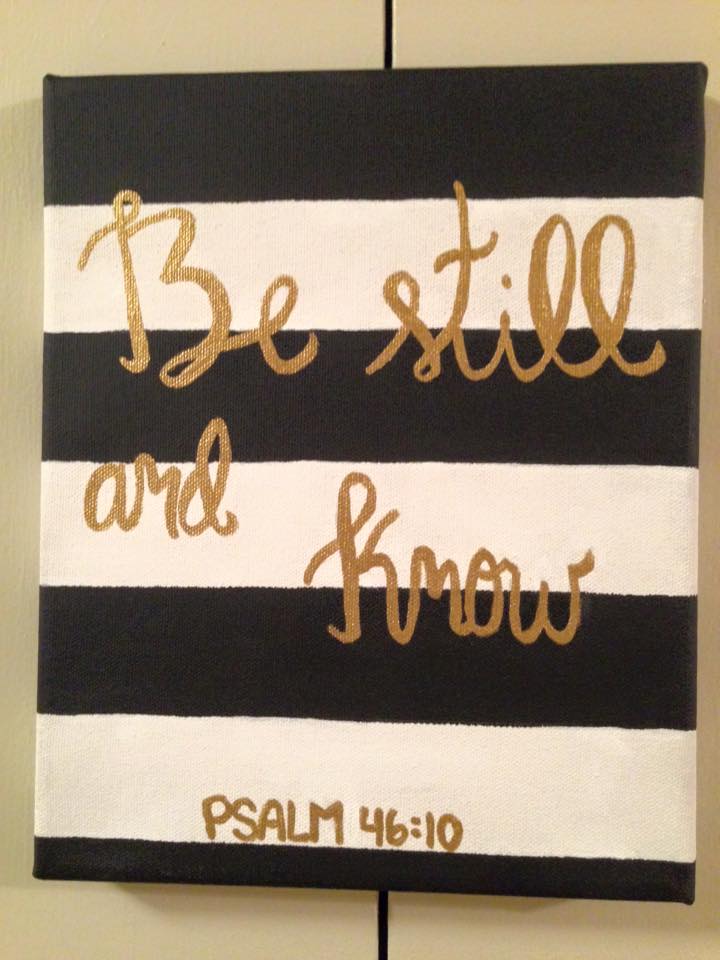 Be still
and
Know
PSALM 46:10